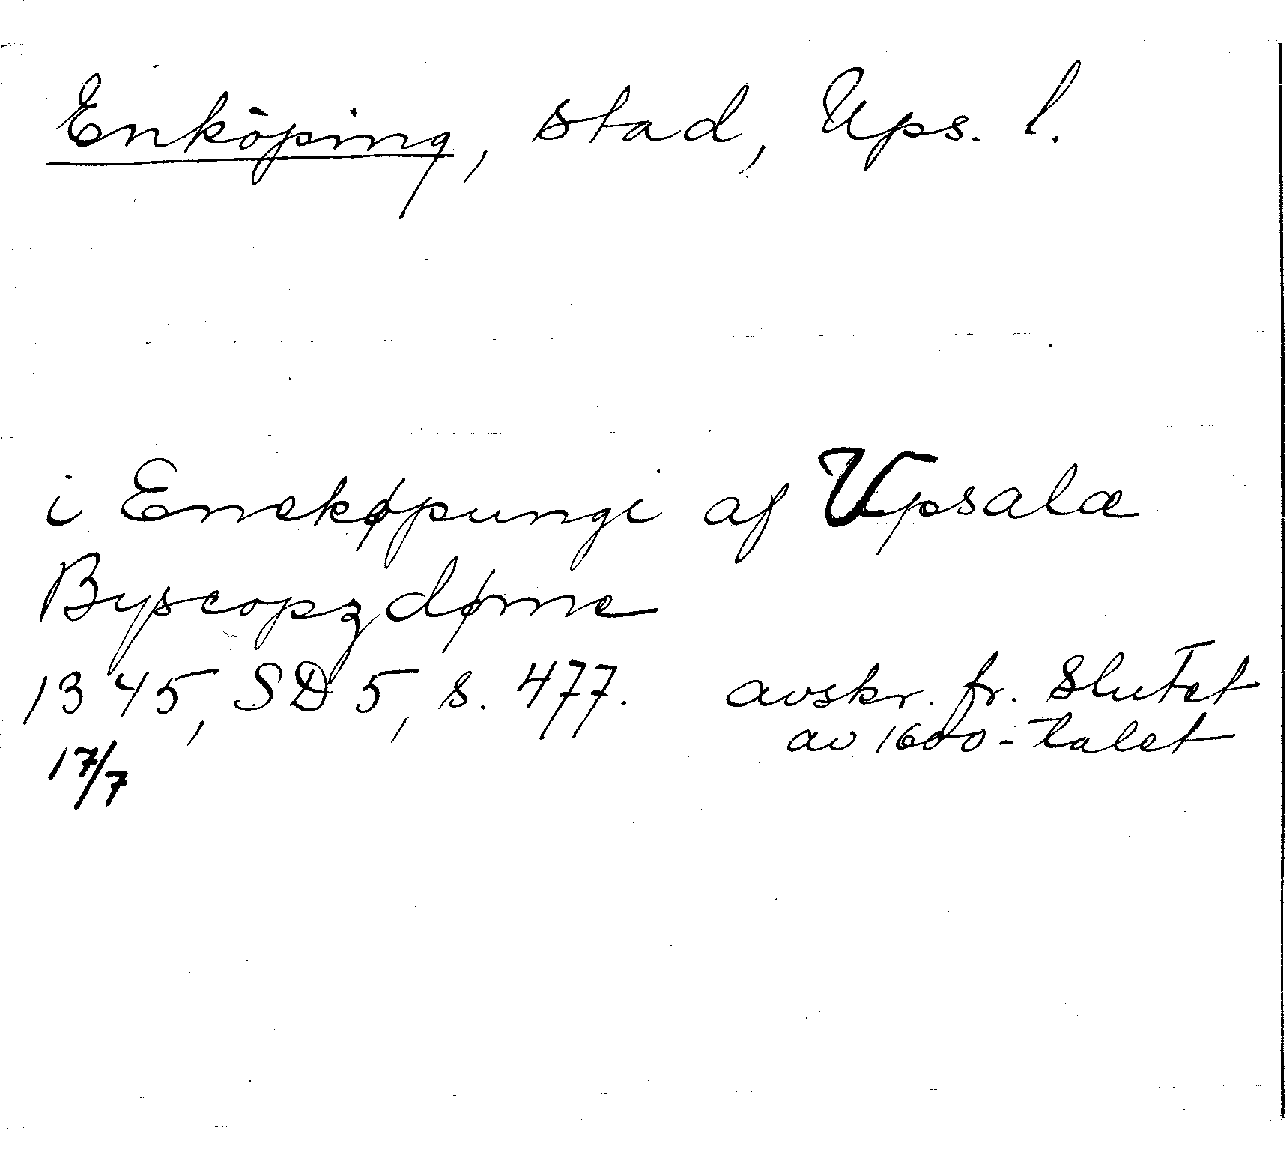 Enköping, stad, Ups. l.
i Enekøpungi af Upsalæ
Byscopzdøme
1345, SD 5, s. 477. avskr. fr. slutet
av 1600-talet
17/7